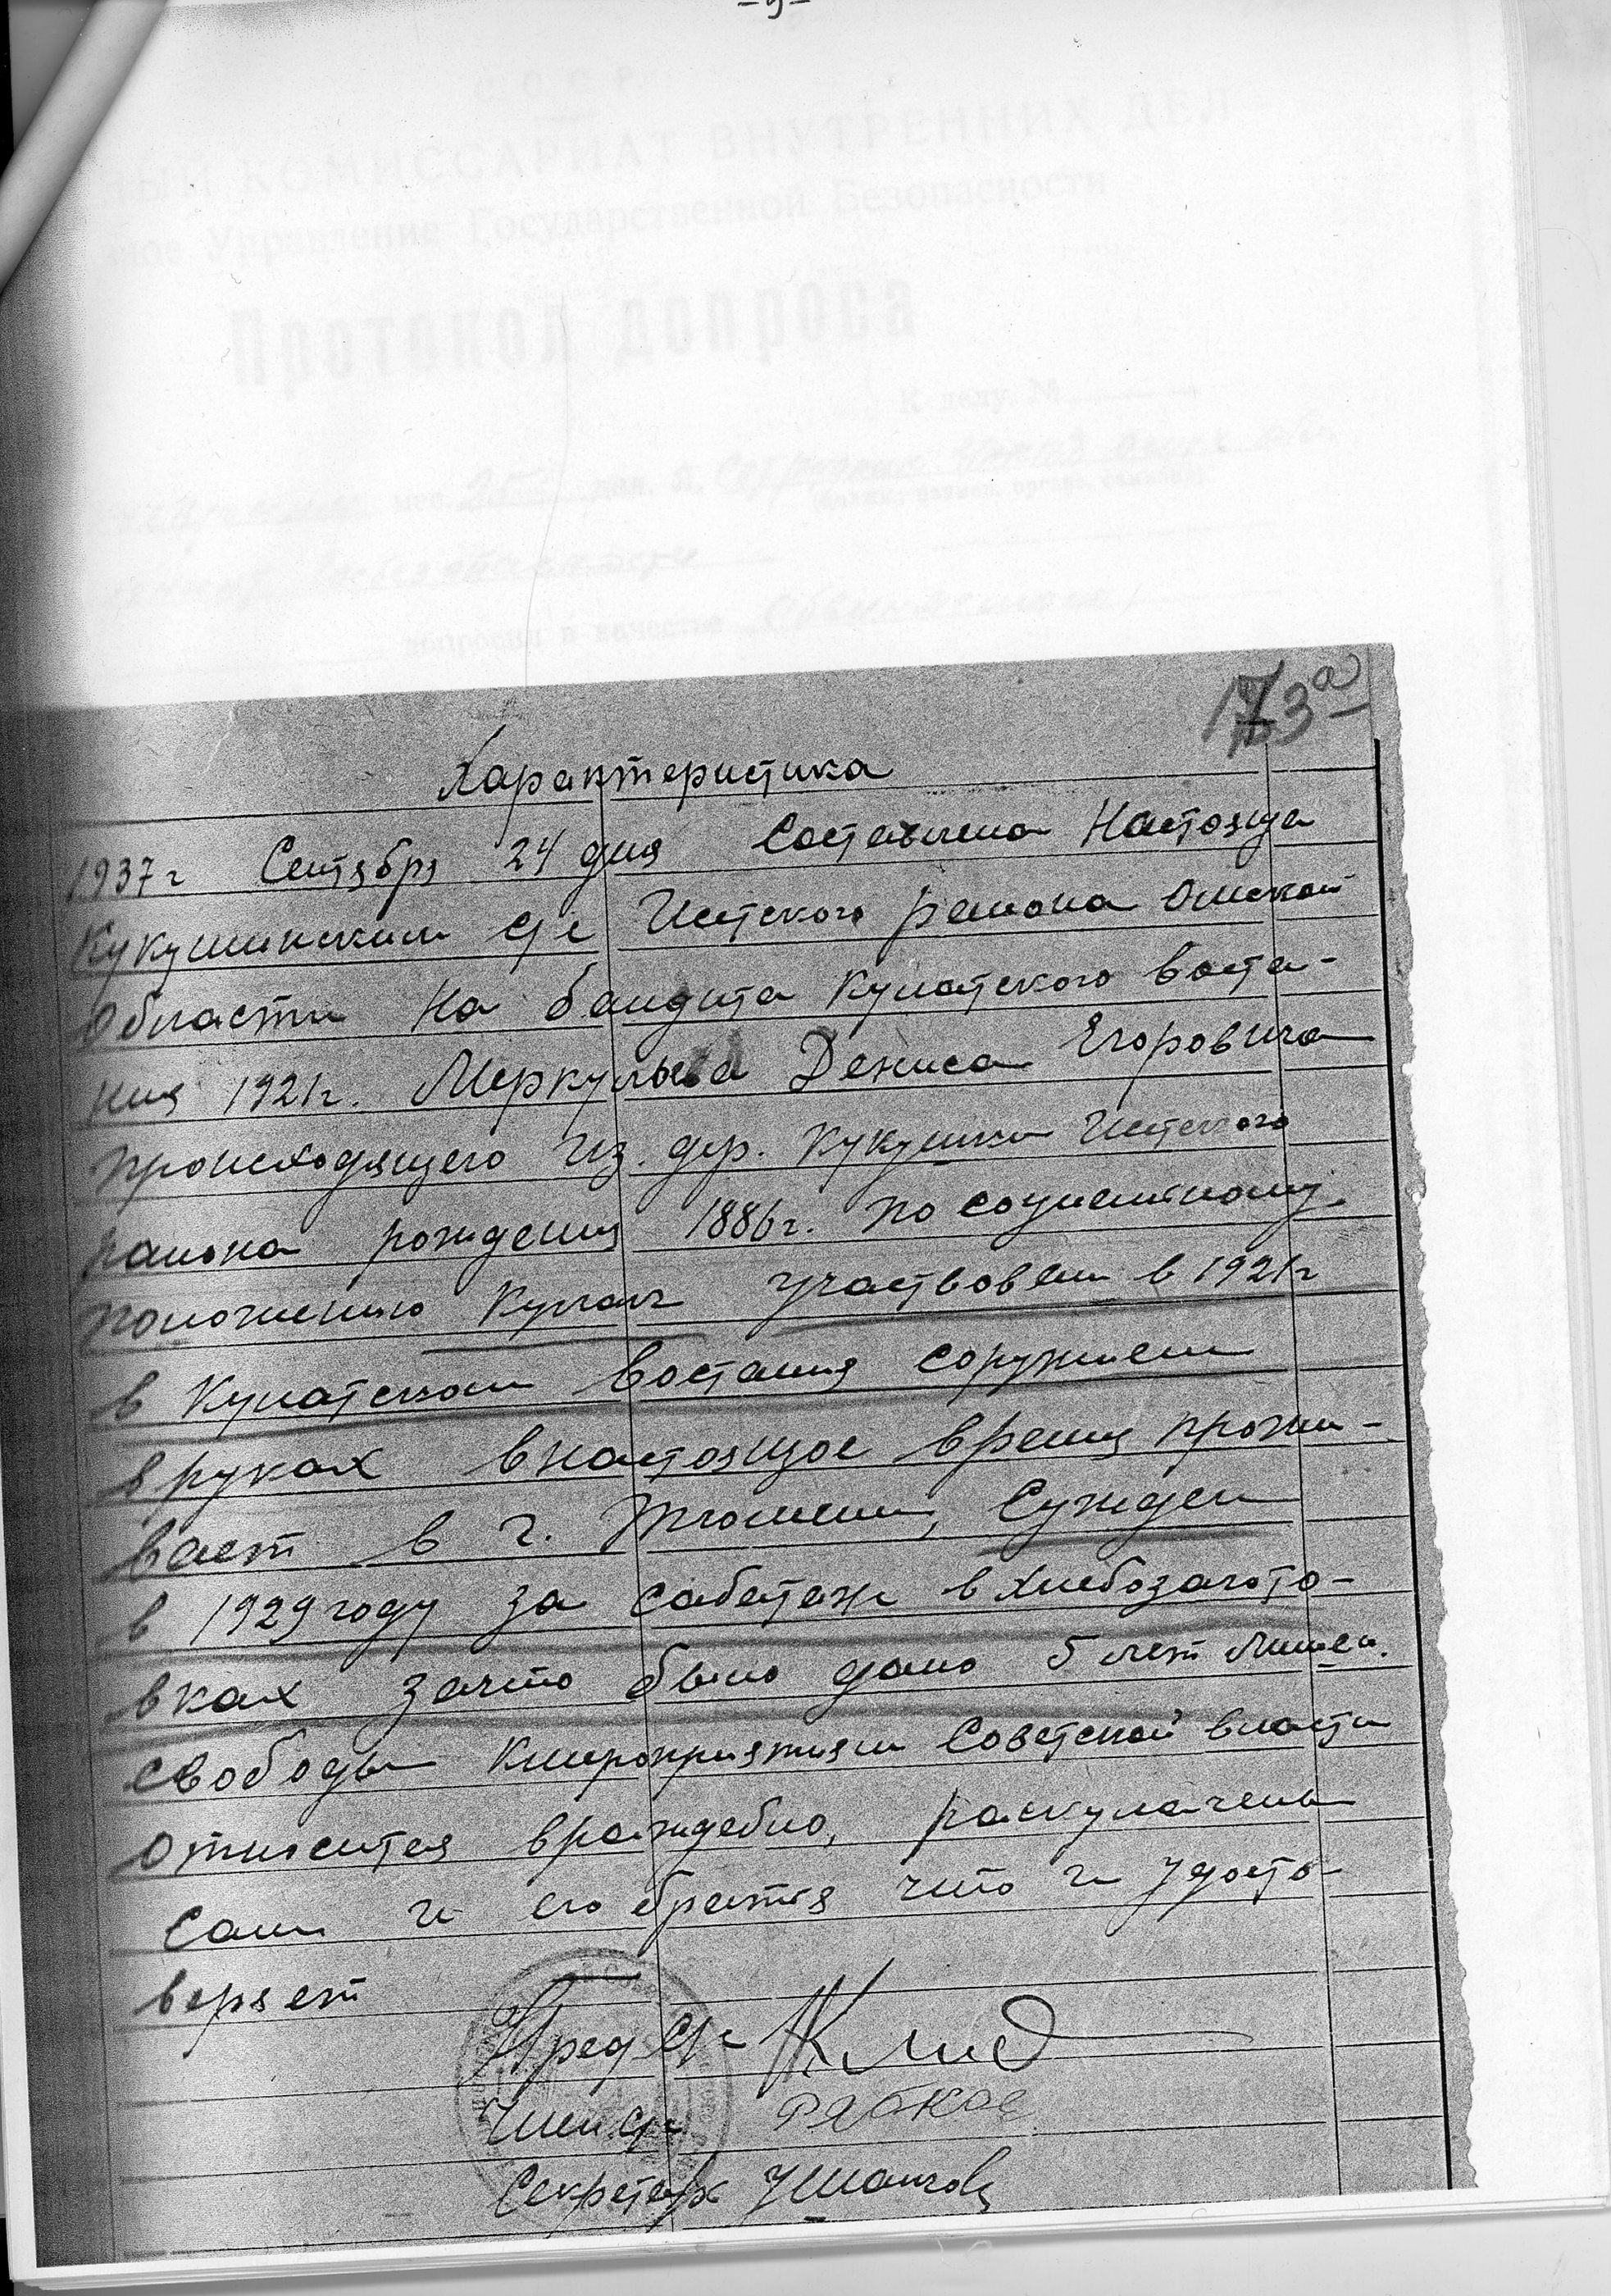 - 9 -
С. С. С. Р.
НЫЙ КОМИССАРИАТ ВНУТРЕННИХ ДЕЛ
ное Управление Государственной Безопасности
Протокол допроса
К делу №
мес. 25 дня. Я,
допросил в качестве
173а
Характеристика
1937г Сентября 24 дня Составлена Настояща
Кукушинским с/с Исетского раиона Омской
Области на бандита Кулатского воста-
ния 1921г. Меркульева Дениса Егоровича
происходящего из. дер. Кукушки Исетского
раиона рождения 1886г. по социальному
положению кулак участвовал в 1921г
в Кулатском востания соружием
в руках внастоящое время прожи-
вает в г. Тюмени, Сужден
в 1929 году за сабатаж в хлебозагото-
вках зачто было дано 5 лет лишен.
свободы Кмероприятиям Советской власти
относится враждебно, раскулачены
сам и его братья что и удосто-
веряет
Пред С/с
Член с/с
Секретарь Ушаков